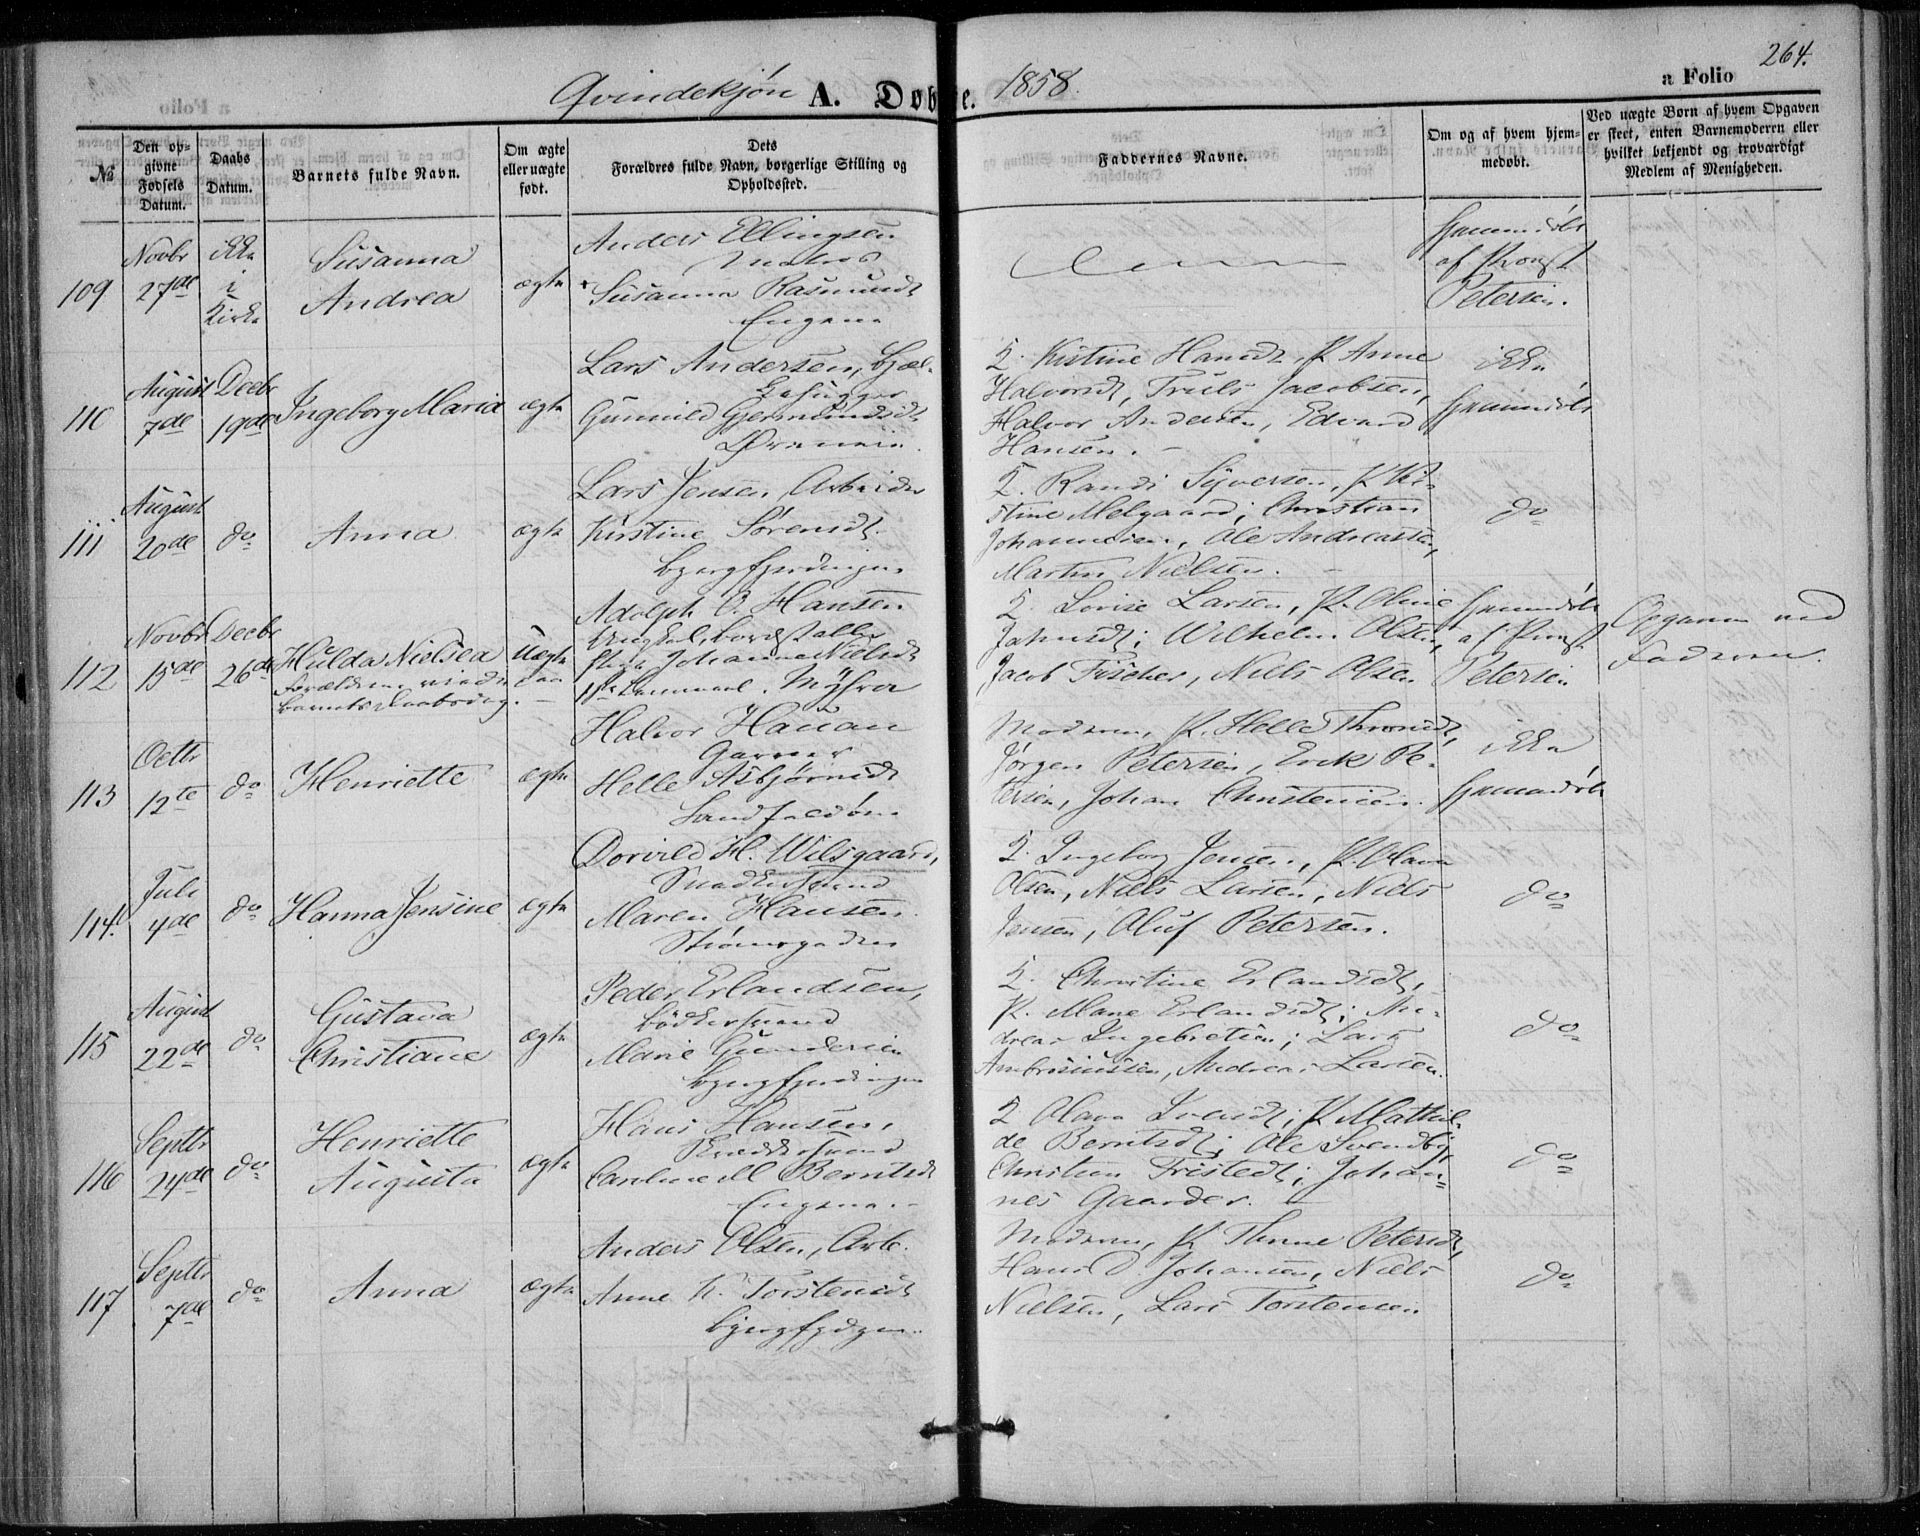 264.
Qvindekjøn A. Døbte. 1858. a Folio
№
Den op-
givne
Fødsels
Datum.
Daabs
Datum.
Barnets fulde Navn.
Om ægte
eller uægte
født.
Dets
Forældres fulde Navn, borgerlige Stilling og
Opholdssted.
Faddernes Navne.
Om og af hvem hjem-
medøbt.
Ved uægte Børn af hvem Opgaven
er skeet, enten Barnemoderen eller
hvilket bekjendt og troværdigt
Medlem af Menigheden.
109
Novbr
27de
ikke
i
Kirke
Susanna
Andrea
ægte
Anders Ellingsen
Susanna Rasmusdt
Engene
hjemmedøbt
af Provst
Petersen.
110
August
7de
Decbr
19de
Ingeborg Maria
ægte
Lars Andersen, Bjæl-
kehugger
Gunnild Gjermundsdt
Øvremoie
2. Kistine Hansdt, K Anne
Halvorsdt, Truls Jacobsen,
Halvor Andersen, Edvard
Hansen.
ikke
hjemmedøbt
111
August
20de
do
Anna
ægte
Lars Jensen, Arbeider
Kirstine Sørensdt.
Bjergfjerdingen
2. Randi Syversen, K Ki-
stine Melgaard; Christian
Johannesen, Ole Andreassen,
Martin Nielsen.
do
112
Novbr
15de
Decbr
26de
Hulda Nielsea
Forældrene viede
Barnets Daabsdag.
Uægte
Adolph O. Hansen
Ungkarl,
Pige Johanna Nielsdt
1ste Leiermaal. Myhra
2. Lovise Larsen, K. Oline
Jahnsdt; Wilhelm Olsen,
Jacob Fischer, Niels Olsen
hjemmedøbt
af Provst
Petersen
Opgaven ved
Faderen.
113
Octbr
12te
do
Henriette
ægte
Halvor Hauan
Garver
Helle Asbjørnsdt
Landfaldøen
Moderen, K. Helle Thronsdt,
Jørgen Petersen, Erik Pe-
tersen, Johan Christensen.
ikke
hjemmedøbt
114
Juli
4de
do
Hanna Jensine
ægte
Dorvild H. Wilsgaard,
Snedkersvend
Maren Hansen.
Strømsgaden
2. Ingeborg Jensen, K. Olava
Olsen, Niels Larsen, Niels
Jensen, Oluf Petersen.
do
115
August
22de
do
Gustava
Christiane
ægte
Peder Erlandsen,
Bødkersvend
Marie Gundersen
Bjergfjerdingen
2. Christine Erlandsdt,
K. Mane Erlandsdt; An-
dreas Ingebretsen; Lars
Ambrosiussen, Andreas Larsen.
do
116
Septbr
24de
do
Henriette
Augusta
ægte
Hans Hansen,
Skræddersvend
Caroline M Berntsdt
Engene.
2 Olava Iversdt; K Mathil-
de Berntsdt; Ole Svendby,
Christian Fristedt; Johan-
nes Gaarder.
do
117
Septbr
7de
do
Anna
ægte
Anders Olsen, Arb.
Anne K. Torstensdt
Bjergfjdgen.
Moderen, K Thrine Petersdt,
Hans D Johansen, Niels
Nielsen, Lars Torstensen
do